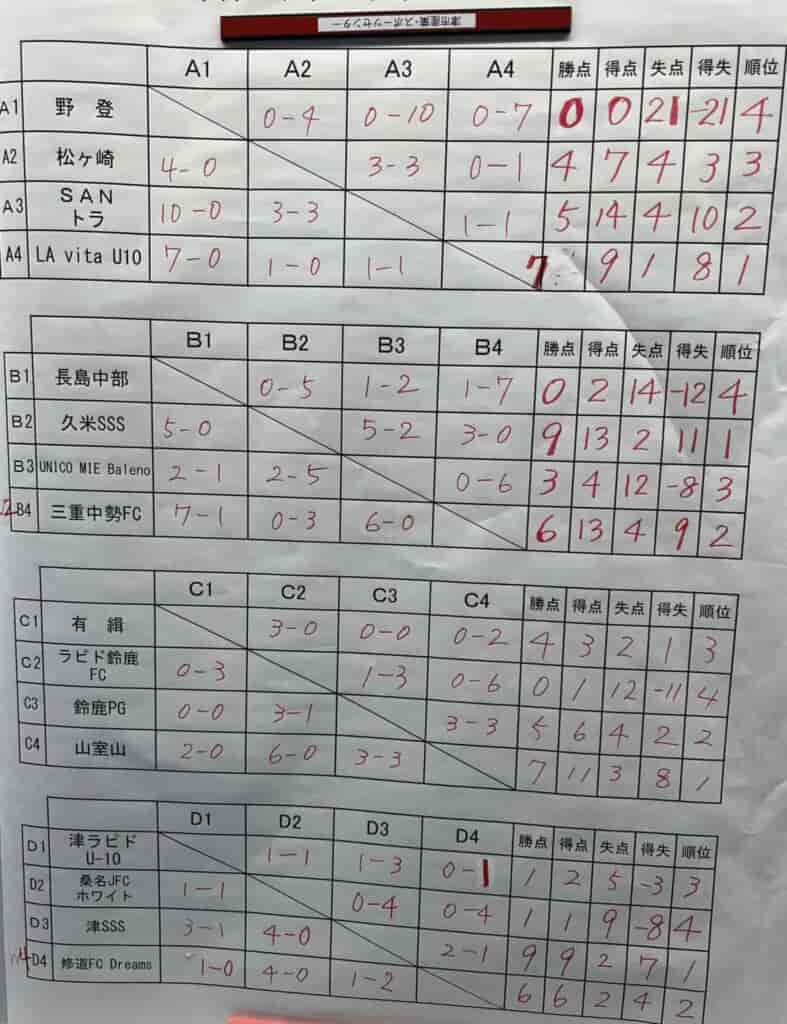 津市産業・スポーツセンター
A1 A2 A3 A4 勝点 得点 失点 得失 順位
A1 野 登 0-4 0-10 0-7 0 0 21 -21 4
A2 松ヶ崎 4-0 3-3 0-1 4 7 4 3 3
A3 SAN トラ 10-0 3-3 1-1 5 14 4 10 2
A4 LA vita U10 7-0 1-0 1-1 7 9 1 8 1
B1 B2 B3 B4 勝点 得点 失点 得失 順位
B1 長島中部 0-5 1-2 1-7 0 2 14 -12 4
B2 久米SSS 5-0 5-2 3-0 9 13 2 11 1
B3 UNICO MIE Baleno 2-1 2-5 0-6 3 4 12 -8 3
B4 三重中勢FC 7-1 0-3 6-0 6 13 4 9 2
C1 C2 C3 C4 勝点 得点 失点 得失 順位
C1 有 緝 3-0 0-0 0-2 4 3 2 1 3
C2 ラピド鈴鹿 FC 0-3 1-3 0-6 0 1 12 -11 4
C3 鈴鹿PG 0-0 3-1 3-3 5 6 4 2 2
C4 山室山 2-0 6-0 3-3 7 11 3 8 1
D1 D2 D3 D4 勝点 得点 失点 得失 順位
D1 津ラピド U-10 1-1 1-3 0-1 1 2 5 -3 3
D2 桑名JFC ホワイト 1-1 0-4 0-4 1 1 9 -8 4
D3 津SSS 3-1 4-0 2-1 9 9 2 7 1
D4 修道FC Dreams 1-0 4-0 1-2 6 6 2 4 2